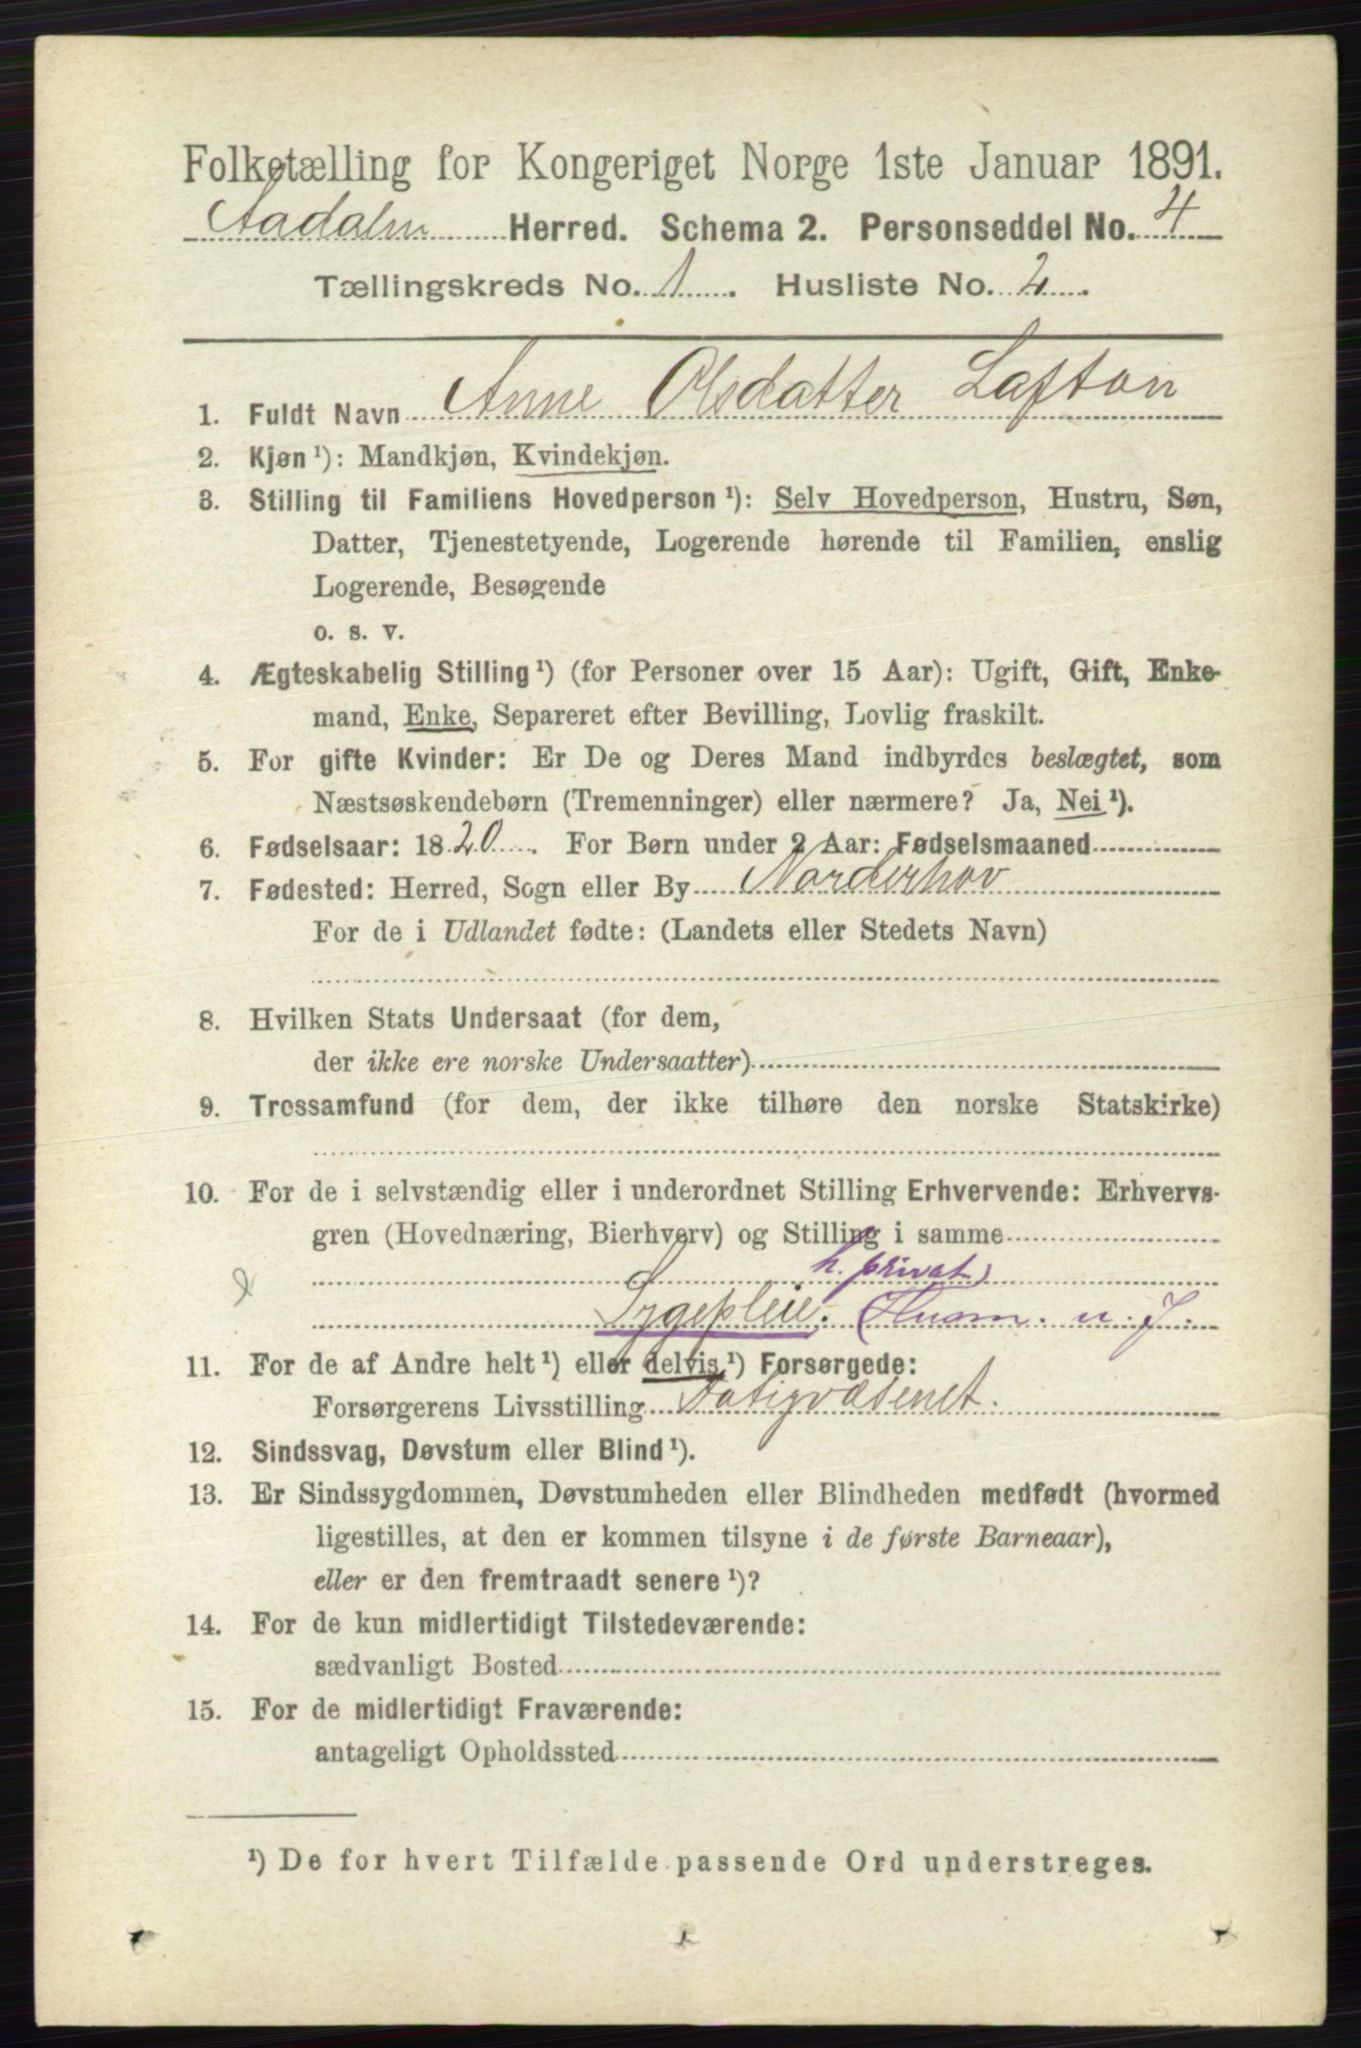 Folketælling for Kongeriget Norge 1ste Januar 1891.
Aadalen Herred. Schema 2. Personseddel No. 4
Tællingskreds No. 1. Husliste No. 2.
1. Fuldt Navn Anne Olsdatter Lafton
2. Kjøn¹): Mandkjøn, Kvindekjøn.
3. Stilling til Familiens Hovedperson¹): Selv Hovedperson, Hustru, Søn,
Datter, Tjenestetyende, Logerende hørende til Familien, enslig
Logerende, Besøgende
o. s. v.
4. Ægteskabelig Stilling¹) (for Personer over 15 Aar): Ugift, Gift, Enke-
mand, Enke, Separeret efter Bevilling, Lovlig fraskilt.
5. For gifte Kvinder: Er De og Deres Mand indbyrdes beslægtet, som
Næstsøskendebørn (Tremenninger) eller nærmere? Ja, Nei¹).
6. Fødselsaar: 1820. For Børn under 2 Aar: Fødselsmaaned
7. Fødested: Herred, Sogn eller By Norderhov
For de i Udlandet fødte: (Landets eller Stedets Navn)
8. Hvilken Stats Undersaat (for dem,
der ikke ere norske Undersaatter)
9. Trossamfund (for dem, der ikke tilhøre den norske Statskirke)
10. For de i selvstændig eller i underordnet Stilling Erhvervende: Erhvervs-
gren (Hovednæring, Bierhverv) og Stilling i samme
h. privat)
Sygepleie. (Husm. u. J.
11. For de af Andre helt¹) eller delvis¹) Forsørgede:
Forsørgerens Livsstilling Fatigvæsenet.
12. Sindssvag, Døvstum eller Blind¹).
13. Er Sindssygdommen, Døvstumheden eller Blindheden medfødt (hvormed
ligestilles, at den er kommen tilsyne i de første Barneaar),
eller er den fremtraadt senere¹)?
14. For de kun midlertidigt Tilstedeværende:
sædvanligt Bosted
15. For de midlertidigt Fraværende:
antageligt Opholdssted
¹) De for hvert Tilfælde passende Ord understreges.